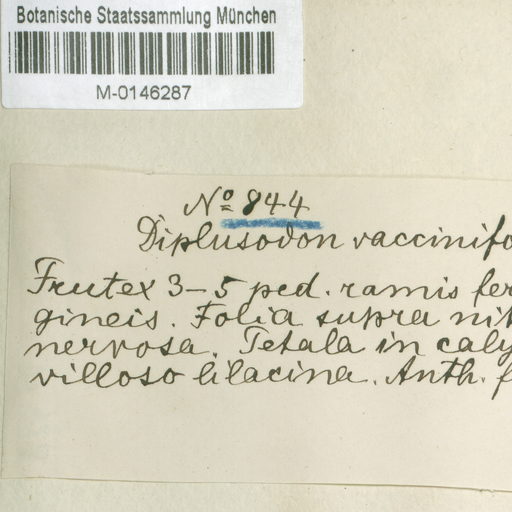 Botanische Staatssammlung München
M-0146287
Nº 844
Diplusodon vaccinifo
Frutex 3-5 ped. ramis fer
gineis. Folia supra nit
nervosa. Petala in caly
villoso lilacina. Anth. f